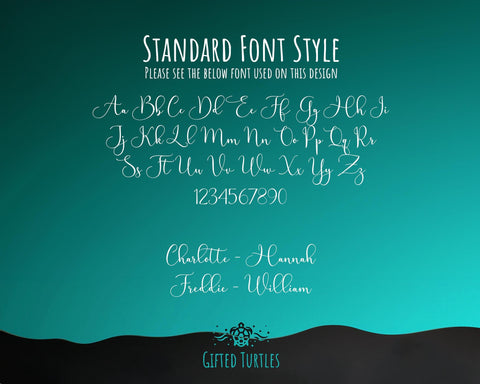 Standard Font Style
Please see the below font used on this design
Aa Bb Cc Dd Ee Ff Gg Hh Ii
Jj Kk Ll Mm Nn Oo Pp Qq Rr
Ss Tt Uu Vv Ww Xx Yy Zz
1234567890
Charlotte - Hannah
Freddie - William
Gifted Turtles